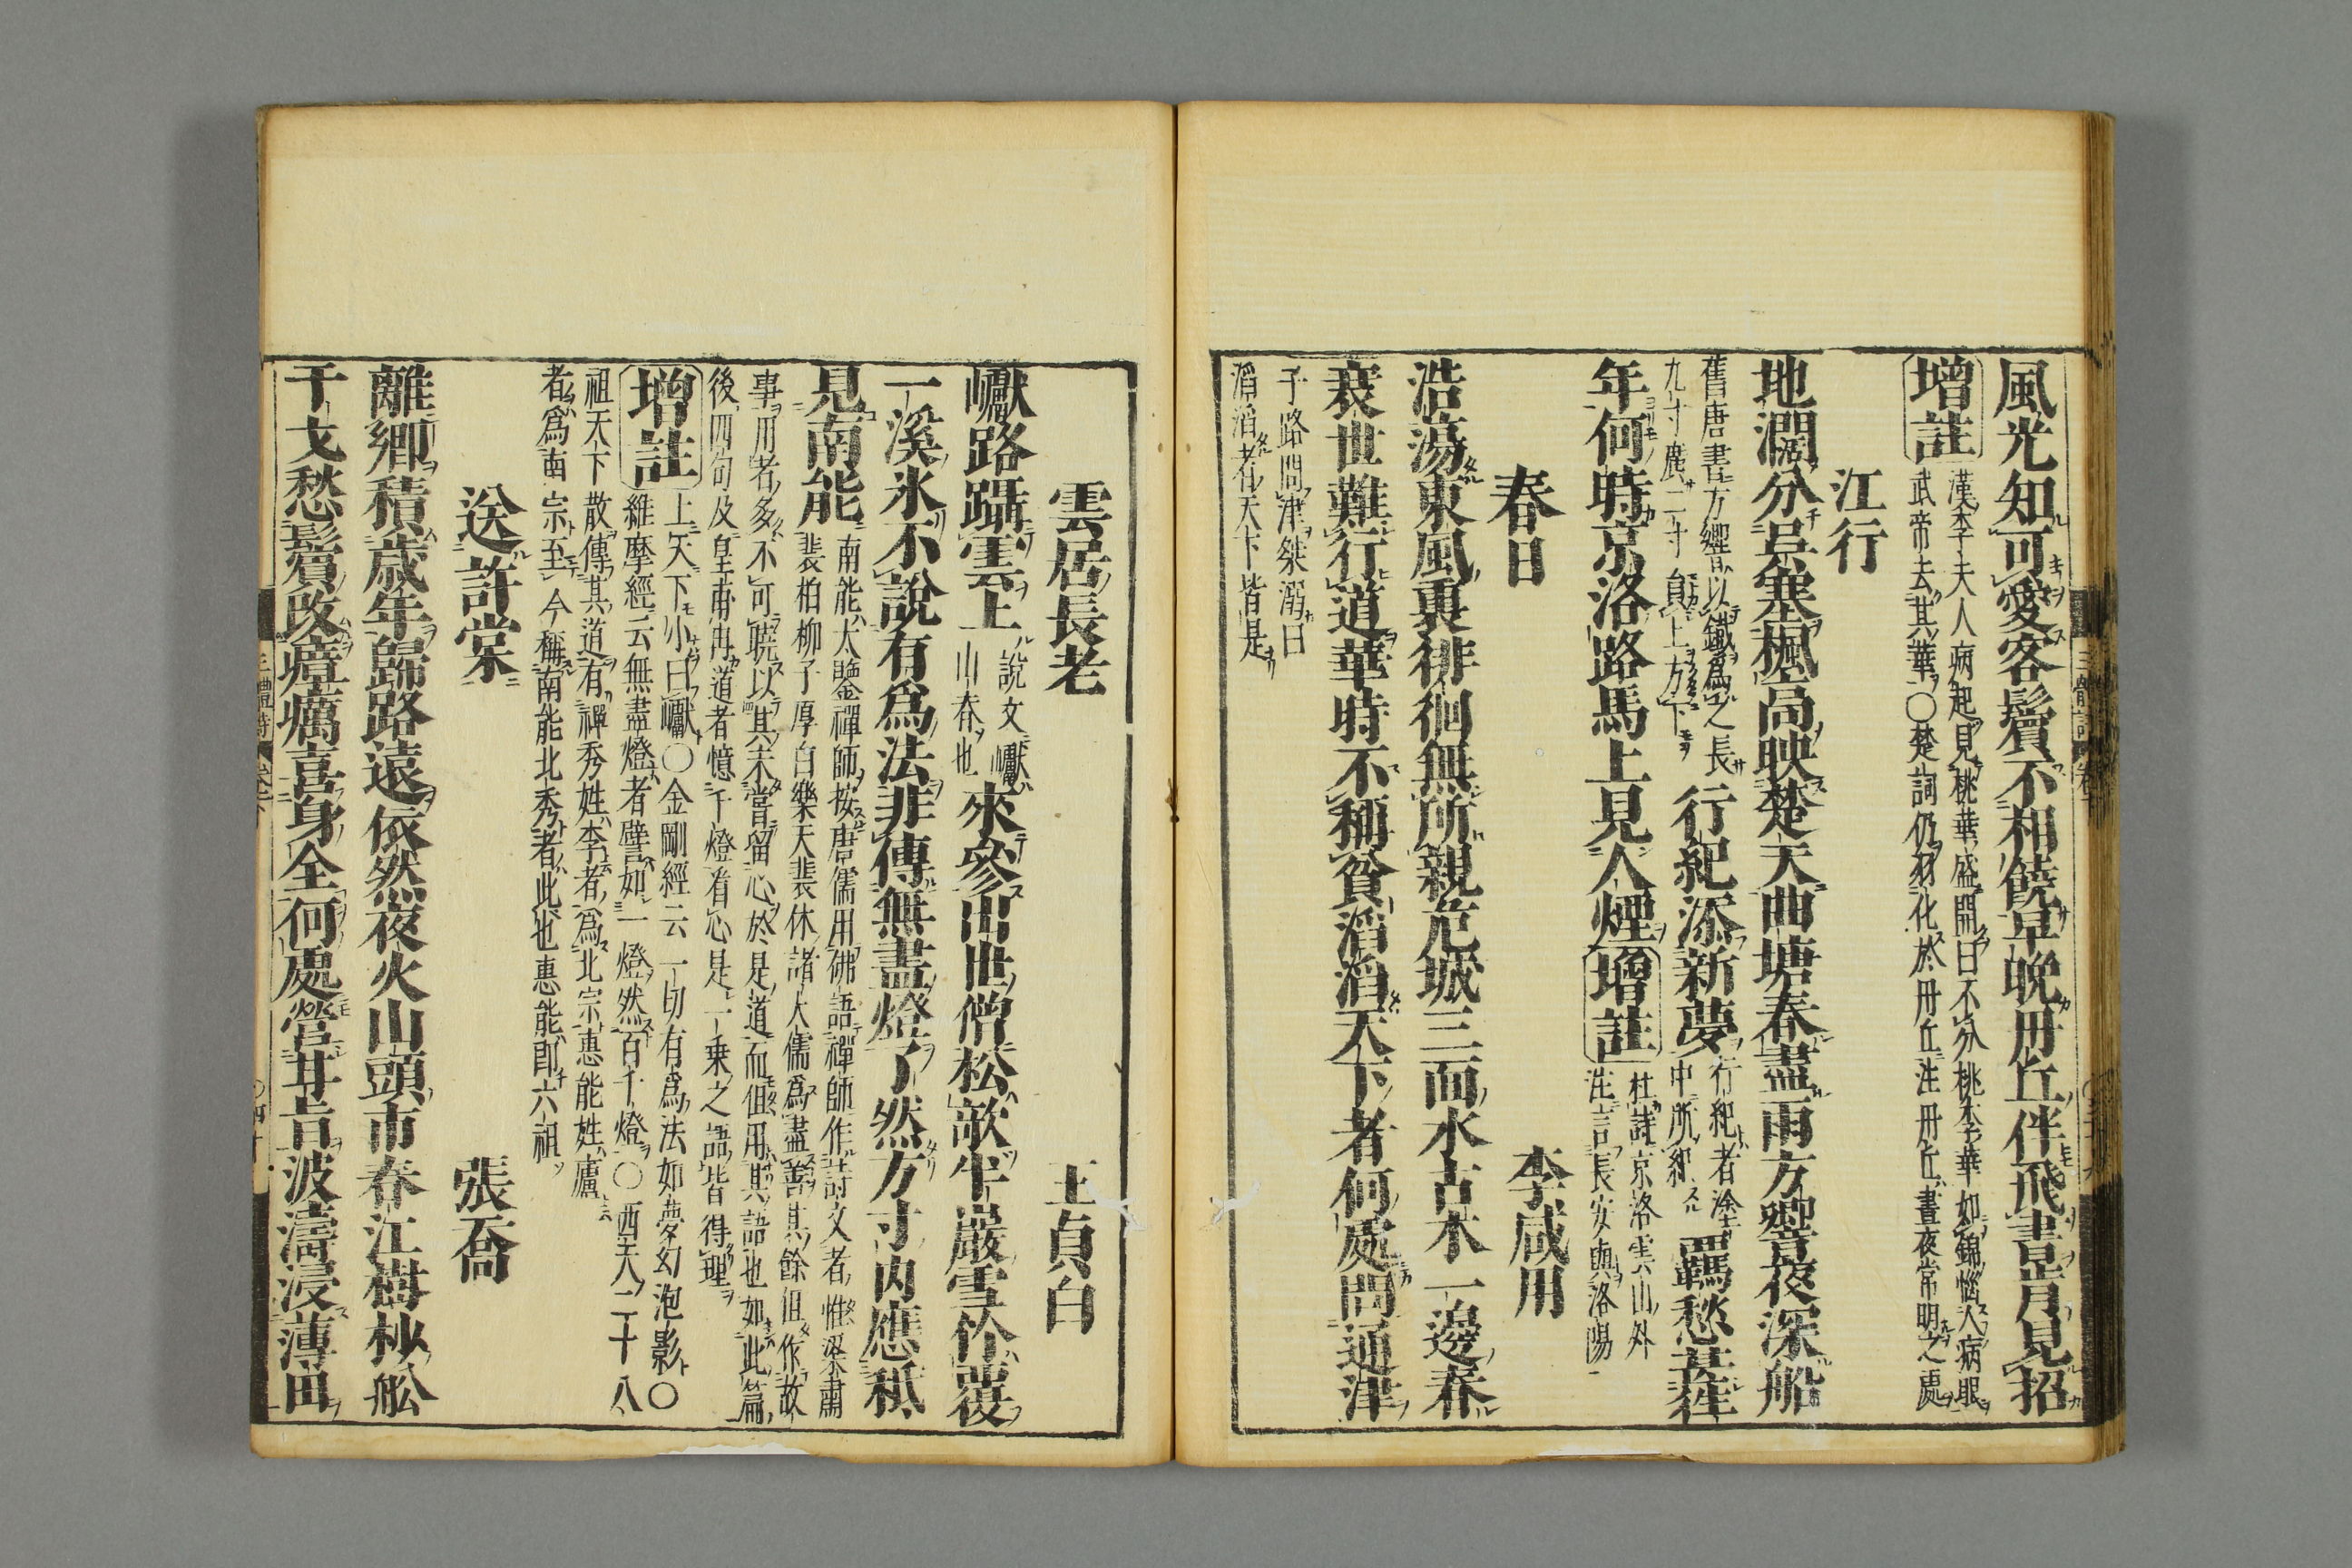 風光知可愛客鬢不相饒早晚丹丘伴飛書肯見招
增註
漢李夫人病起見桃華盛開曰不分桃李華如錦惱人病眼
武帝去其華○楚詞仍羽化於丹丘注丹丘晝夜常明之處
江行
地濶分吳塞楓高映楚天曲塘春盡雨方響夜深船
舊唐書方響以鐵為之長
九寸廣二寸負上方下
行紀添新夢
行紀者塗
中所紀
羇愁甚往
年何時京洛路馬上見人煙
增註
杜詩京洛雲山外
注言長安與洛陽
春日
李咸用
浩蕩東風裏徘徊無所親危城三面水古木一邊春
衰世難行道華時不稱貧滔滔天下者何處問通津
子路問津桀溺曰
滔滔者天下皆是
雲居長老
王貞白
巘路躡雲上
說文巘
山春也
來參出世僧松欹半巖雪竹覆
一溪氷不說有為法非傳無盡燈了然方寸內應秪
見南能
南能大鑒禪師按唐儒用佛語禪師作詩文者惟梁肅
裴柏柳子厚白樂天裴休諸大儒為盡善其餘但作故
事用者多不可曉以其未嘗留心於是道而但用其語也如此篇
後四句及皇甫冉道者憶千燈看心是一乗之語皆得理
增註
上大下小曰巘○金剛經云一切有為法如夢幻泡影○
維摩經云無盡燈者譬如一燈然百千燈○西天二十八
祖天下散傳其道有禪秀姓李者為北宗惠能姓盧
者為南宗至今稱南能北秀者此也惠能即六祖
送許棠
張喬
離鄉積歲年歸路遠依然夜火山頭市春江樹杪舩
干戈愁鬢改瘴癘喜身全何處營甘旨波濤浸薄田